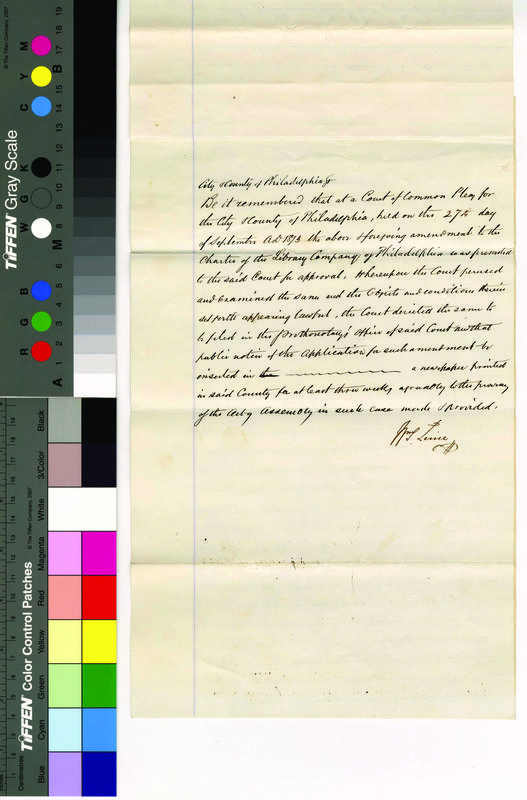 City & County of Philadelphia ss
Be it remembered that at a Court of Common Pleas for
the City & County of Philadelphia, held on this 27th day
of September A.D. 1873 the above & foregoing amendment to the
Charter of the Library Company of Philadelphia was presented
to the said Court for approval. Whereupon the Court perused
and examined the same and the Objects and conditions therein
set forth appearing lawful, the Court directed the same to
be filed in the Prothonotary's Office of said Court and that
public notice of the Application for such amendment be
inserted in the a newspaper printed
in said County for at least three weeks agreeably to the
of the Act of Assembly in such case made & provided.
Wm S.
TIFFEN Gray Scale
© The Tiffen Company, 2007
R G B W G K C Y M
A 1 2 3 4 5 6 M 8 9 10 11 12 13 14 15 B 17 18 19
TIFFEN Color Control Patches
© The Tiffen Company, 2007
Centimetres
Blue Cyan Green Yellow Red Magenta White 3/Color Black